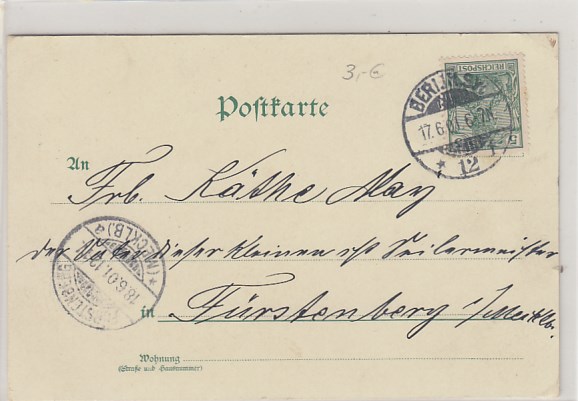 3,-€
REICHSPOST
5
BERLIN S.W.
17.6.01.6-7N.
* 12 *
Postkarte
An
Frl. Käthe May
der Vater dieser Kleinen ist Seilermeister
FÜRSTENBERG
18.6.01.
* (MECKLB.) a
in Fürstenberg i/Mecklb.
Wohnung
(Straße und Hausnummer)